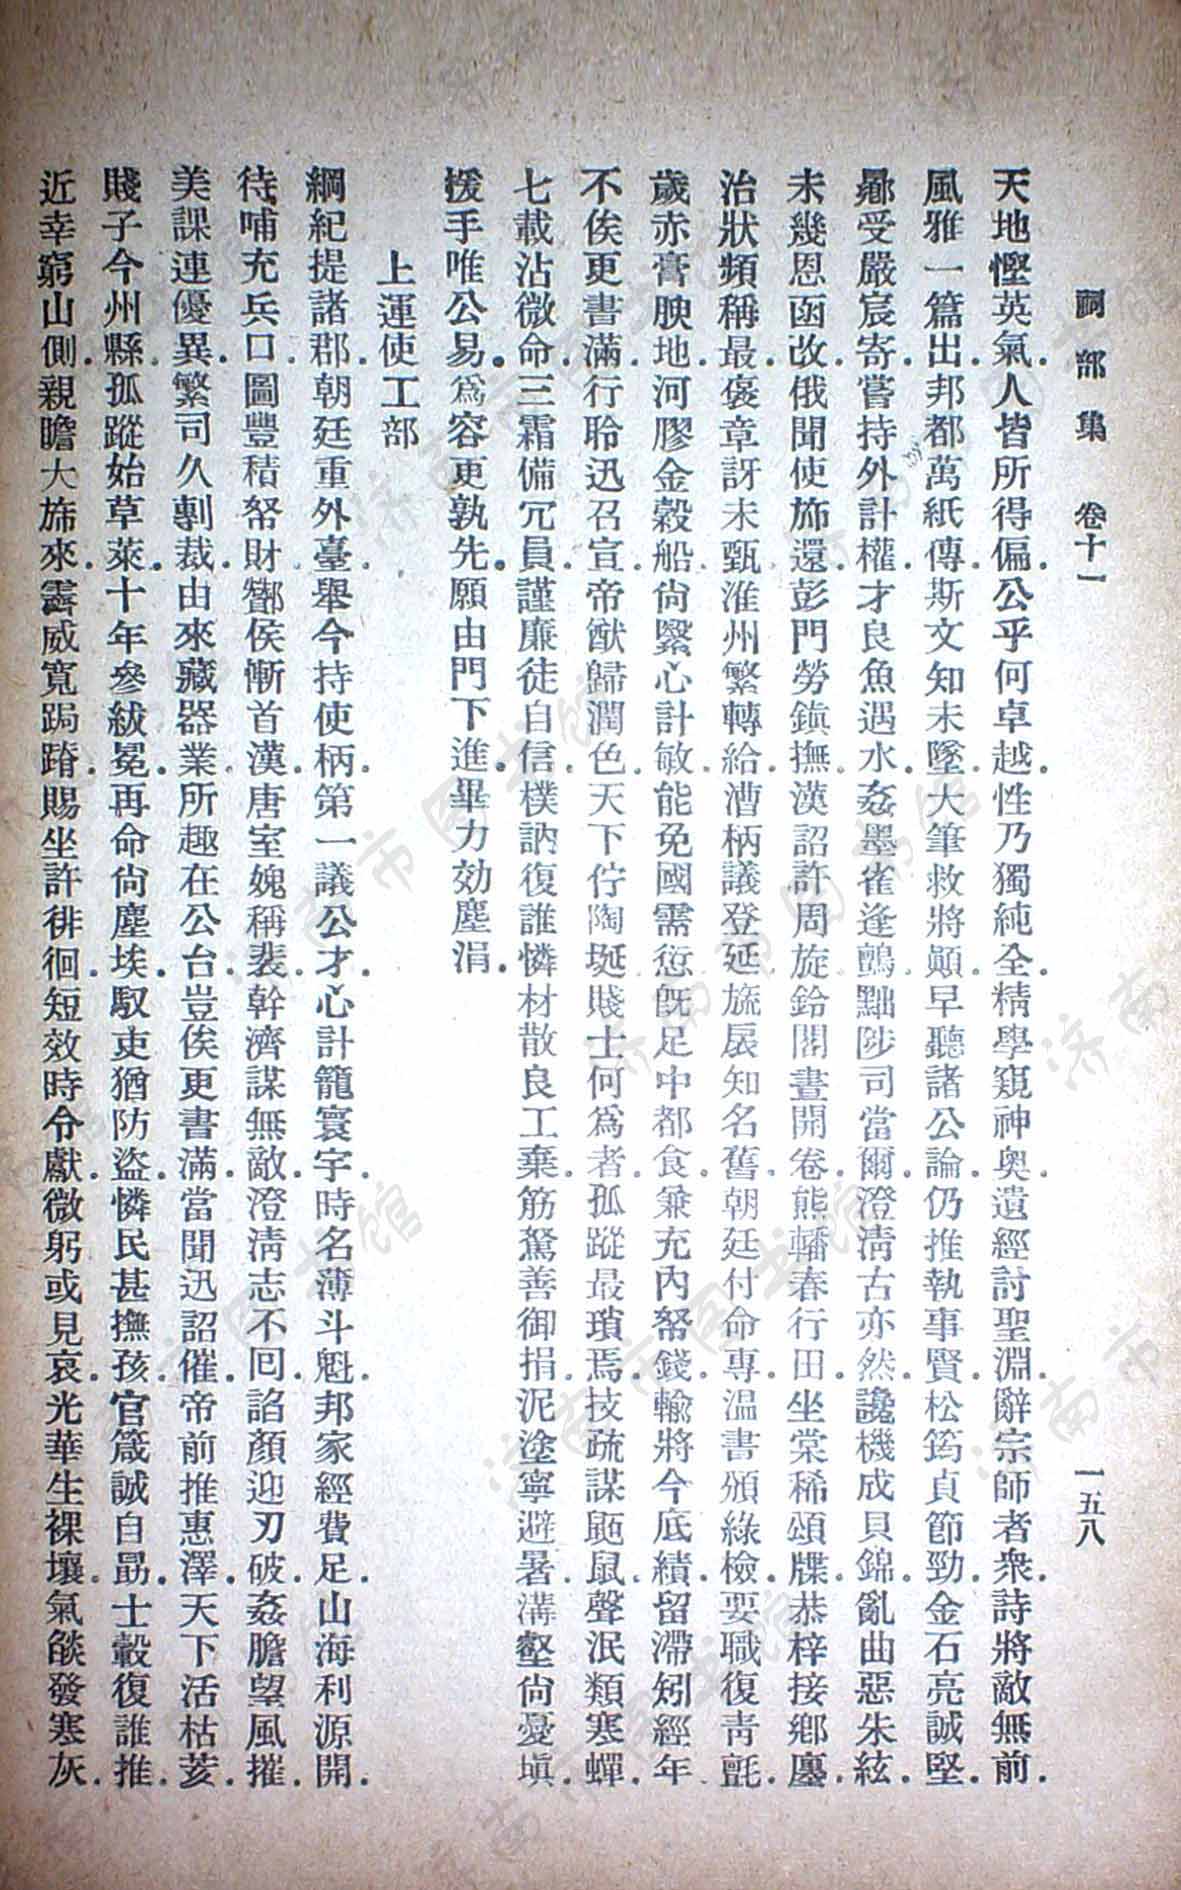 祠部集 卷十一 一五八
天地慳英氣人皆所得偏公乎何卓越性乃獨純全精學窺神奧遺經討聖淵辭宗師者衆詩將敵無前
風雅一篇出邦都萬紙傳斯文知未墜大筆救將顚早聽諸公論仍推執事賢松筠貞節勁金石亮誠堅
屢受嚴宸寄嘗持外計權才良魚遇水姦墨雀逢鸇黜陟司當爾澄淸古亦然讒機成貝錦亂曲惡朱絃
未幾恩函改俄聞使斾還彭門勞鎭撫漢詔許周旋鈴閣晝開卷熊轓春行田坐棠稀頌牒恭梓接鄉廛
治狀頻稱最褒章訝未甄淮州繁轉給漕柄議登延旒扆知名舊朝廷付命專溫書頒綠檢要職復靑氈
歲赤膏腴地河膠金穀船尙緊心計敏能免國需愆旣足中都食兼充內帑錢輸將今底績留滯矧經年
不俟更書滿行聆迅召宣帝猷歸潤色天下佇陶埏賤士何爲者孤蹤最瑣焉技疏謀鼫鼠聲泯類寒蟬
七載沾微命三霜備冗員謹廉徒自信樸訥復誰憐材散良工棄筋駑善御捐泥塗寧避暑溝壑尙憂塡
援手唯公易爲容更孰先願由門下進畢力効塵涓
上運使工部
綱紀提諸郡朝廷重外臺舉今持使柄第一議公才心計籠寰宇時名薄斗魁邦家經費足山海利源開
待哺充兵口圖豐積帑財酇侯慚首漢唐室媿稱裴幹濟謀無敵澄淸志不回諂顏迎刃破姦膽望風摧
美課連優異繁司久剸裁由來藏器業所趣在公台豈俟更書滿當聞迅詔催帝前推惠澤天下活枯荄
賤子今州縣孤蹤始草萊十年參紱冕再命尙塵埃馭吏猶防盜憐民甚撫孩官箴誠自勗士轂復誰推
近幸窮山側親瞻大斾來霽威寬跼蹐賜坐許徘徊短效時令獻微躬或見哀光華生裸壤氣燄發寒灰